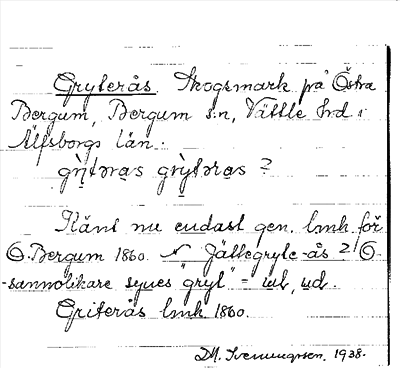 Gryterås Skogsmark på Östra
Bergum, Bergum s:n, Vättle hrd i
Älfsborgs län.
grỳtəras grỳtəras ?
Känt nu endast gen. lmk för
Ö. Bergum 1860. Jättegryte-ås? O-
-sannolikare synes "gryt" =
Griterås lmk 1860.
DM. 1938.